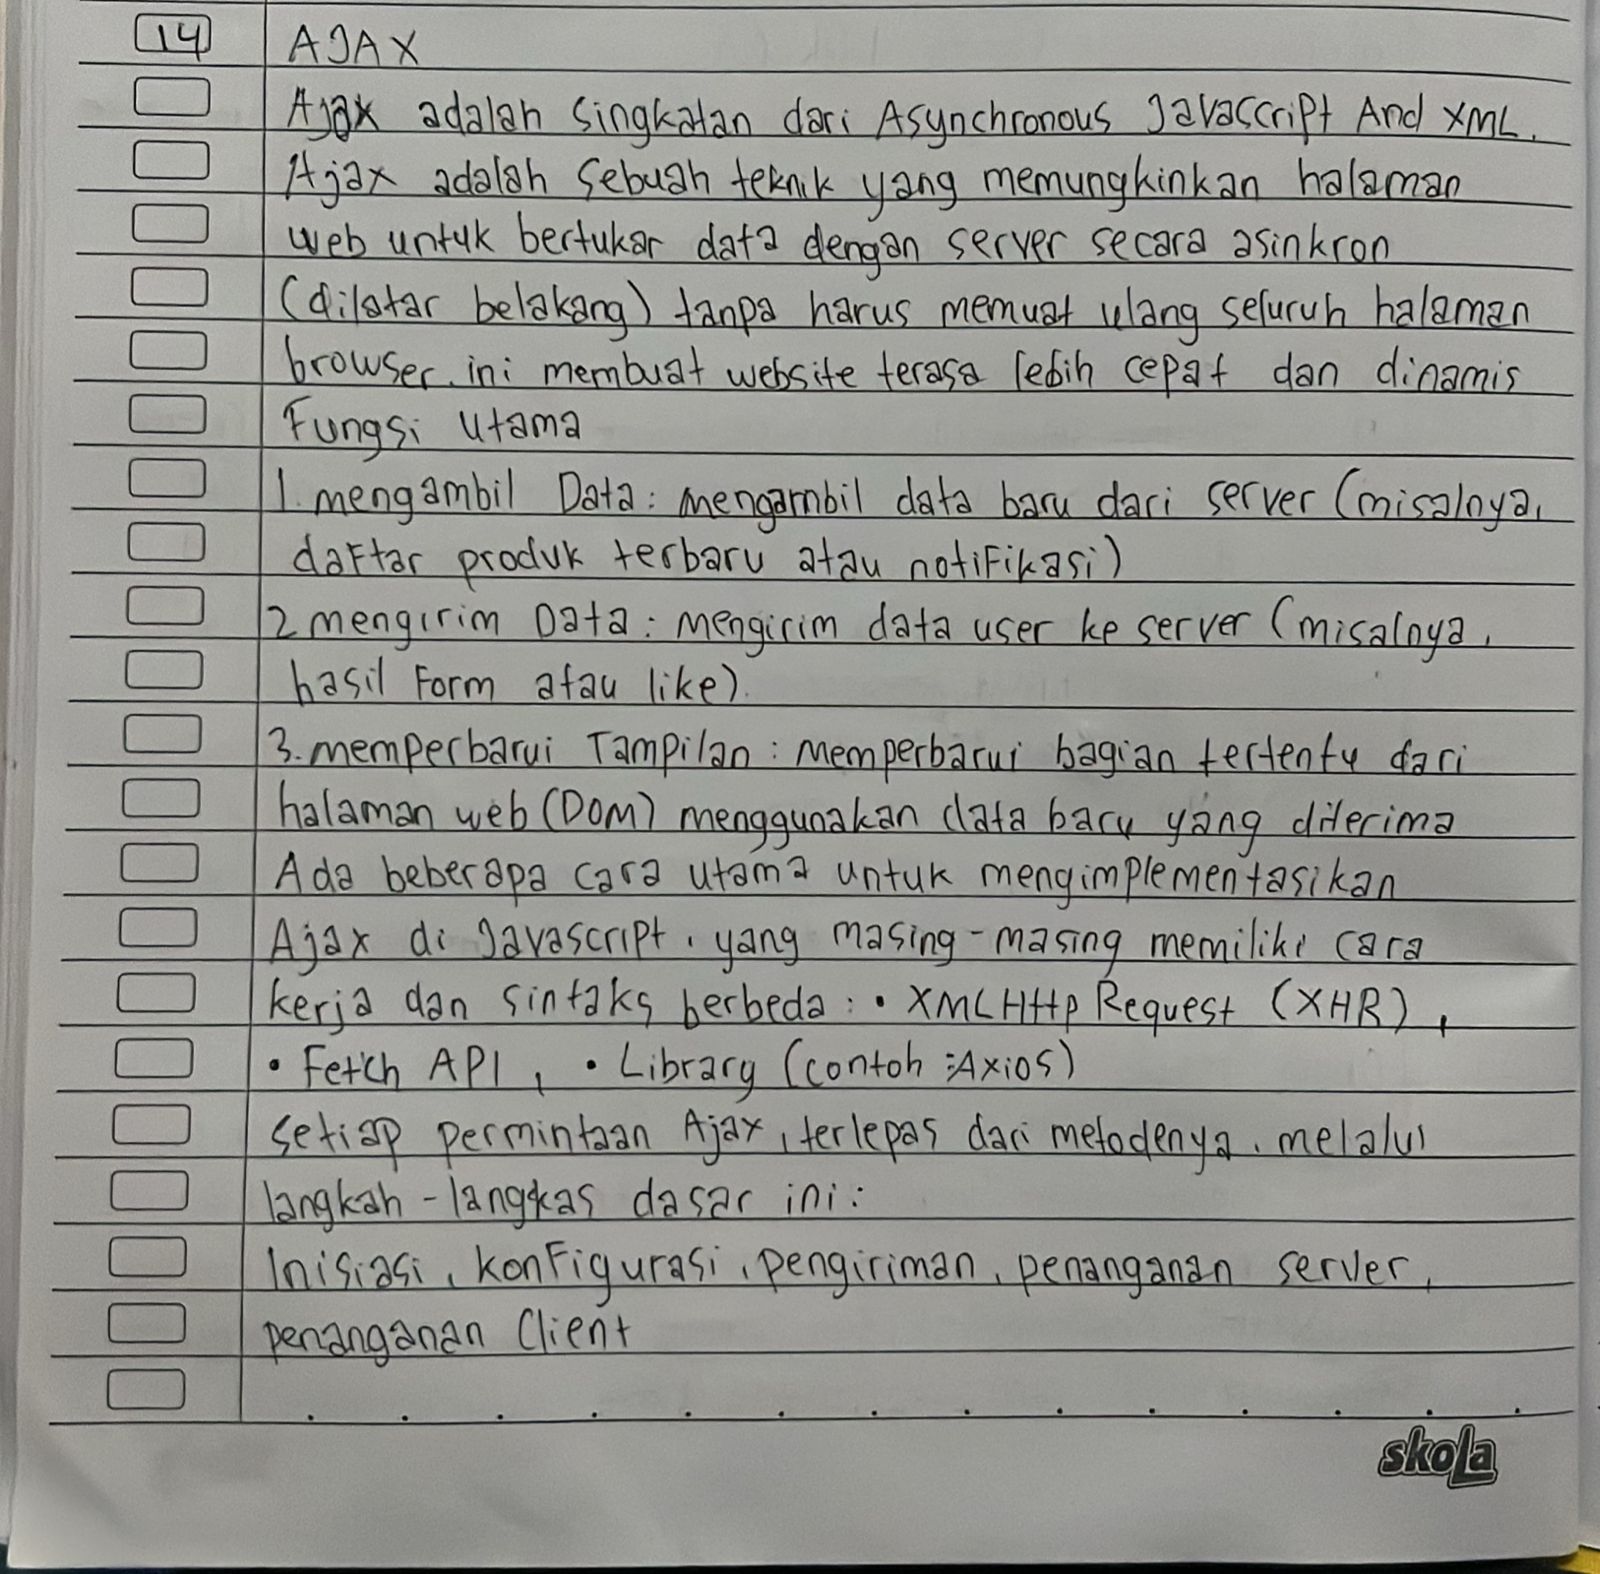 14 AJAX
Ajax adalah singkatan dari Asynchronous Javascript And XML.
Ajax adalah sebuah teknik yang memungkinkan halaman
web untuk bertukar data dengan server secara asinkron
(dilatar belakang) tanpa harus memuat ulang seluruh halaman
browser. ini membuat website terasa lebih cepat dan dinamis
Fungsi Utama
1. mengambil Data : mengambil data baru dari server (misalnya,
daftar produk terbaru atau notifikasi)
2 mengirim Data : mengirim data user ke server (misalnya,
hasil Form atau like).
3. memperbarui Tampilan : memperbarui bagian tertentu dari
halaman web (DOM) menggunakan data baru yang diterima
Ada beberapa cara utama untuk mengimplementasikan
Ajax di Javascript, yang masing-masing memiliki cara
kerja dan sintaks berbeda : • XMLHttpRequest (XHR),
• Fetch API, • Library (contoh : Axios)
setiap permintaan Ajax, terlepas dari metodenya, melalui
langkah-langkas dasar ini :
Inisiasi, konfigurasi, pengiriman, penanganan server,
penanganan Client
skola